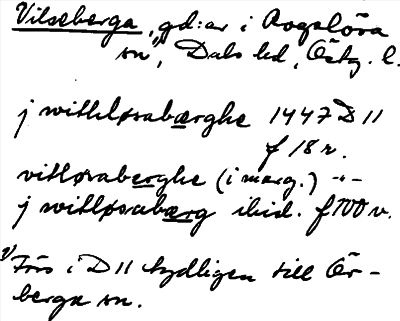 Vilseberga, gd:ar i Rogslösa
sn¹⁾, Dals hd, Östg. l.
j withløsabærghe 1447 D 11
f 18 r.
vitløsaberghe (i marg.) -"-
j witløsabærg ibid. f 100 v.
¹⁾ Förs i D 11 tydligen till Ör-
berga sn.